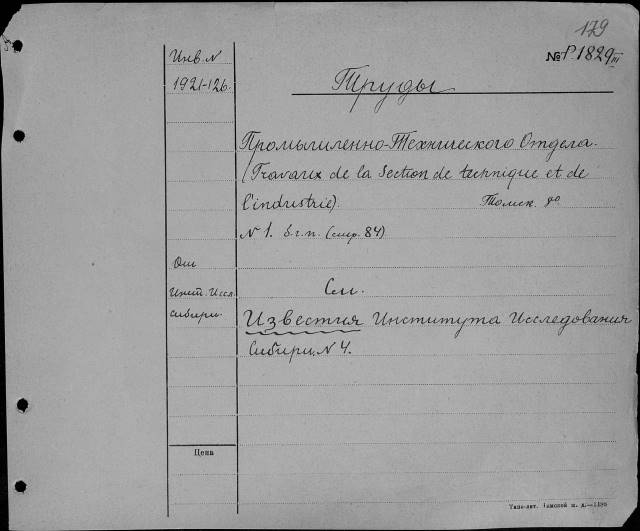 179
№ Р1829 III
Инв. N
1921-126.
Труды
Промышленно-Технического Отдела.
(Travaux de la Section de technique et de
l'industrie). Томск. 8º
N 1. б.г.п. (стр. 84)
От
Инст. Иссл.
Сибири.
См.
Известия Института Исследования
Сибири. N 4.
Цена